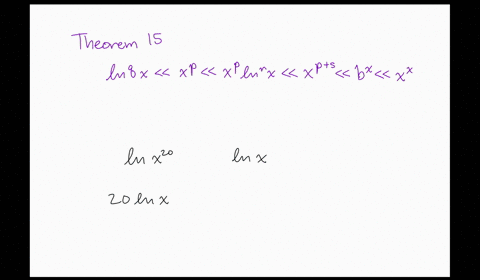 Theorem 15
ln^q x << x^p << x^p ln^r x << x^{p+s} << b^x << x^x
ln x^{20} ln x
20 ln x